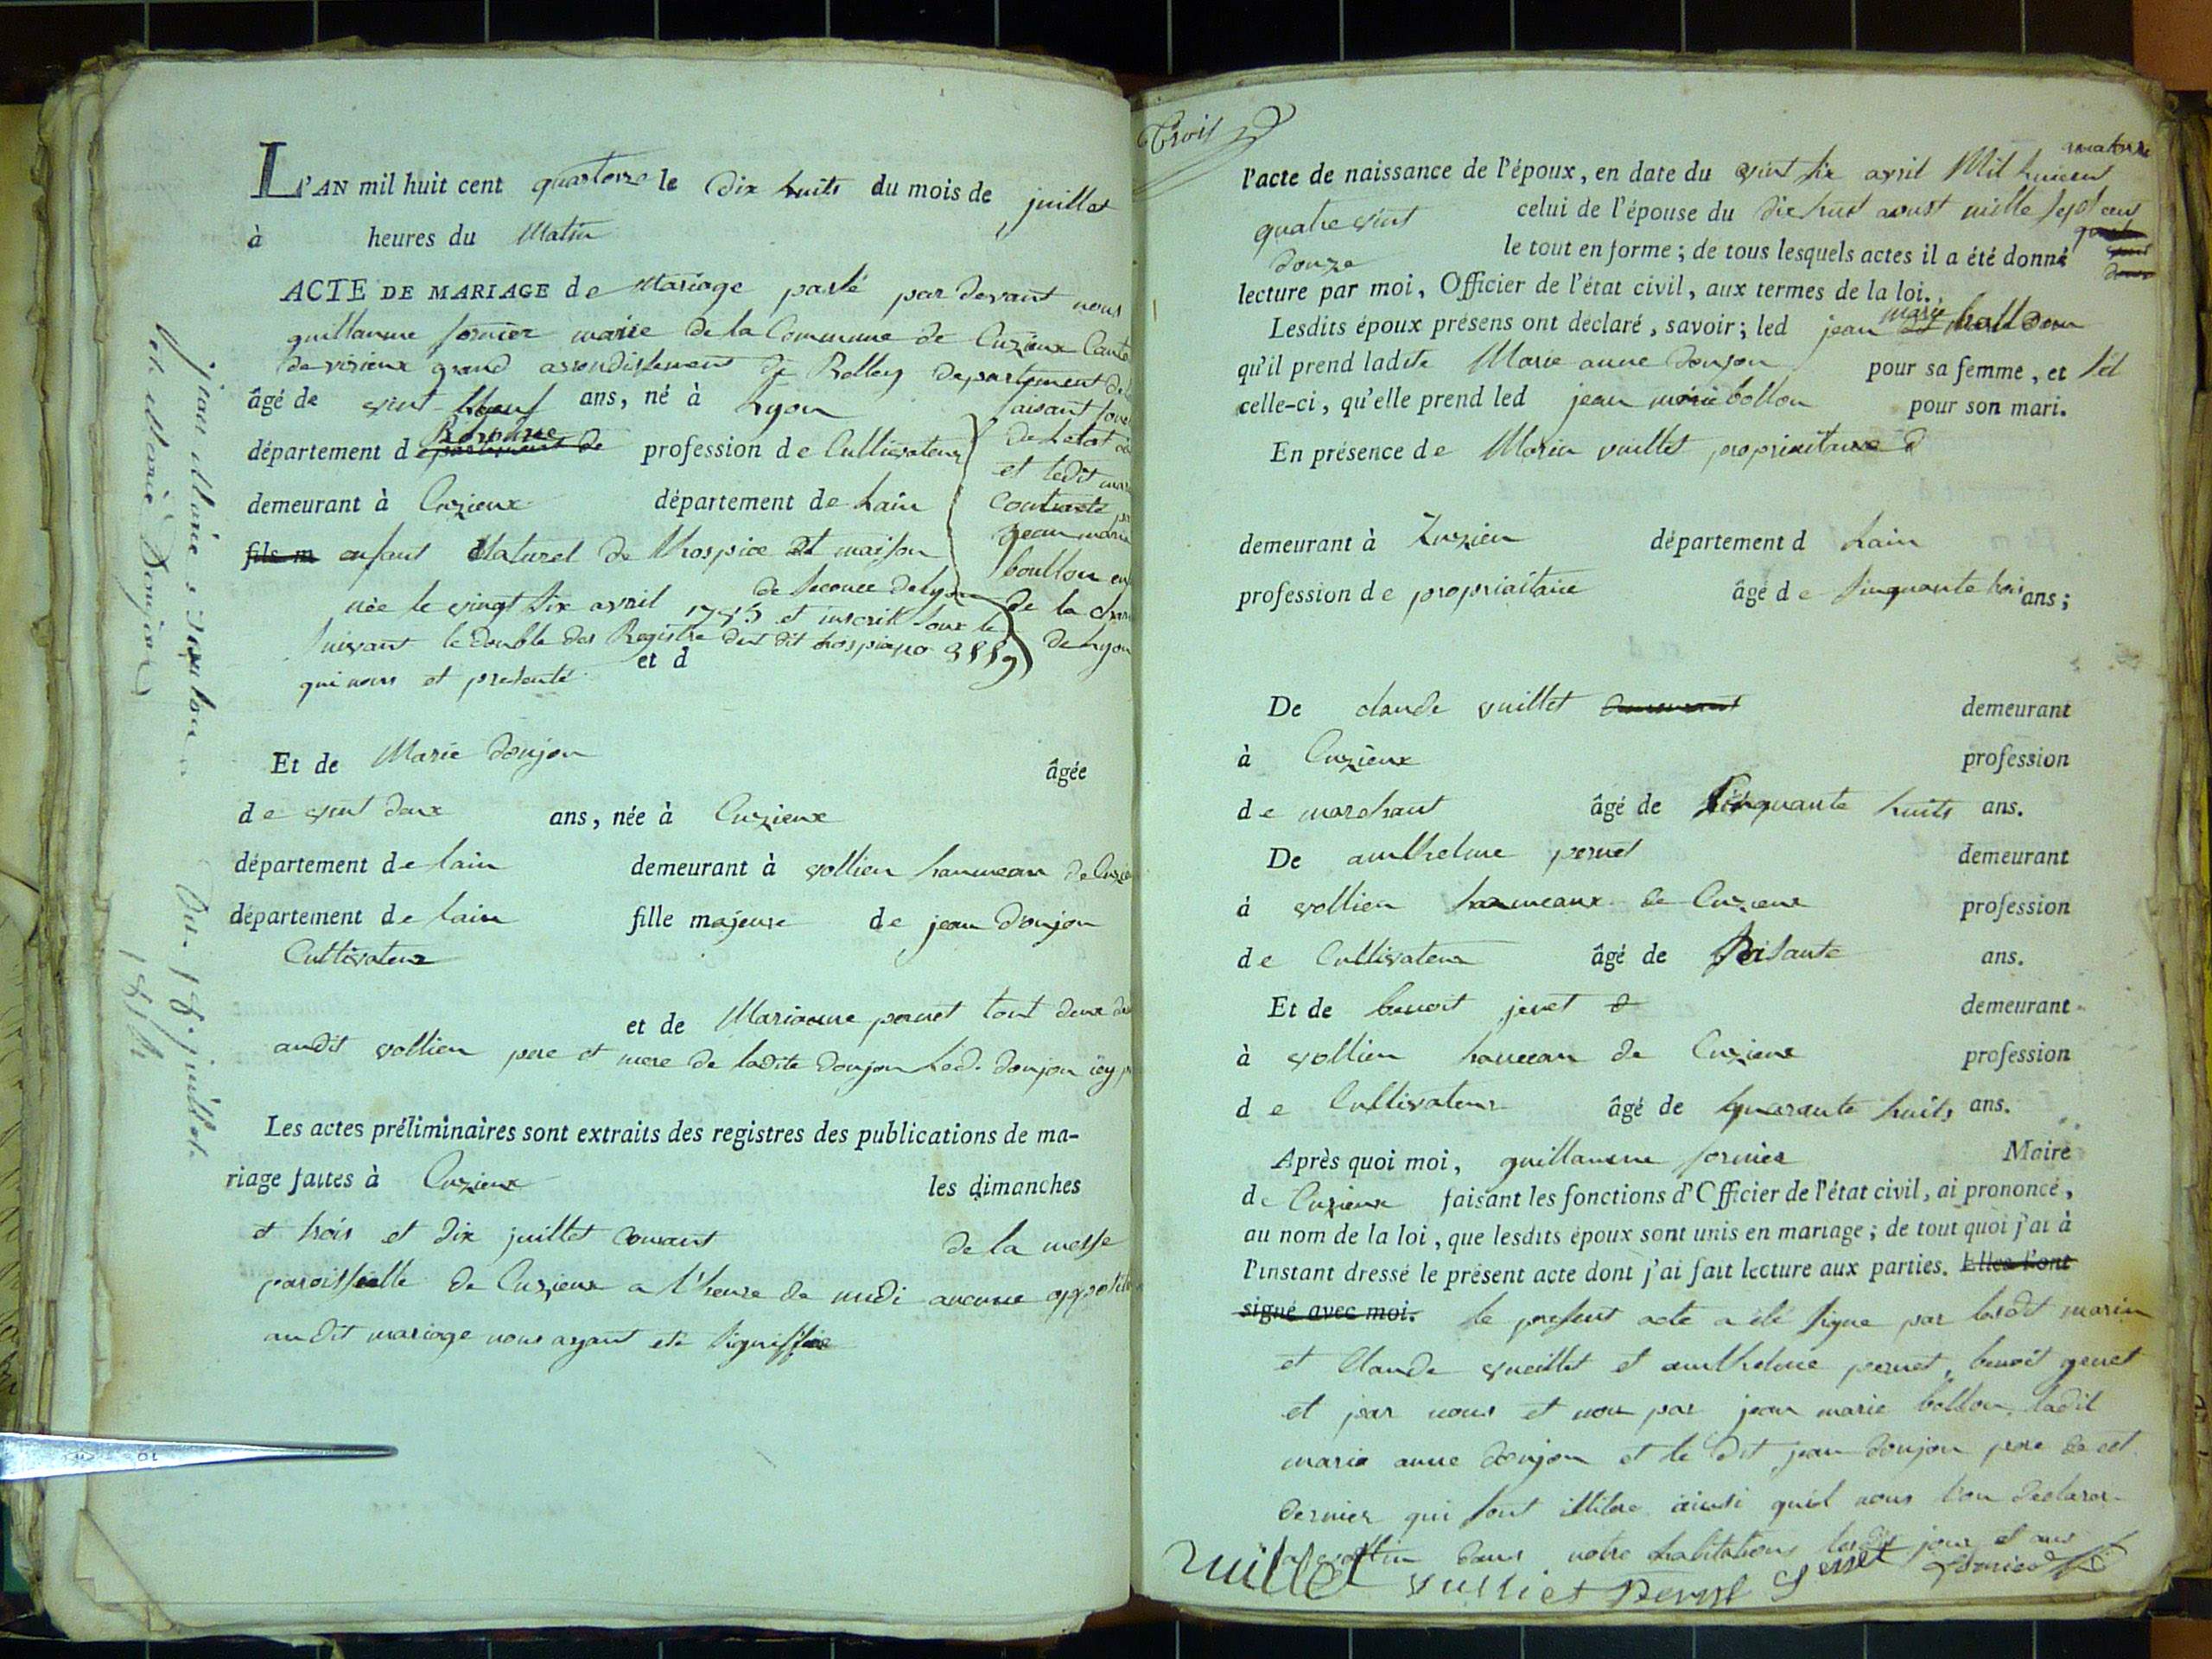 L'AN mil huit cent quatorze le dix huits du mois de juillet
à heures du Matin
ACTE DE MARIAGE de Mariage passé par devant nous
guillaume fornier maire de la Commune de Cuzieux Canto
de virieux grand arrondissement de Belley departement de
âgé de vint neuf ans, né à Lyon
département d Rosne profession de Cultivateur
demeurant à Cuzieux département de Lain
fils m enfant Naturel de Lhospice et maison
de secource de Lyon
née le vingt six avril 1785 et inscrit sous le
suivant le double des Registre du dit hospice no
qui nous et presenté et d
faisant fon
de Letat
et ledit mar
Contracte
jean marie
boullon en
de la char
de Lyon
Et de Marie donjon âgée
de vint deux ans, née à Cuzieux
département de lain demeurant à vollien hammeau de Cuzie
département de lain fille majeure de jean donjon
Cultivateur
et de Marianne pernet tout deux
audit vollien pere et mere de ladite donjon Led. donjon icy p
Les actes préliminaires sont extraits des registres des publications de ma-
riage faites à Cuzieux les dimanches
et trois et dix juillet courant de la messe
paroissielle de Cuzieux a l'heure de midi aucune oppositi
audit mariage nous ayant eté signiffiée
jean Marie Boullon
et Marie Donjon
Du 18 juillet
1814
Trois
l'acte de naissance de l'époux, en date du vint six avril Mil huicent
quatre vint celui de l'épouse du dix huit aoust mille sept cent
douze le tout en forme ; de tous lesquels actes il a été donné
lecture par moi, Officier de l'état civil, aux termes de la loi.
Lesdits époux présens ont déclaré, savoir ; led jean marie bollon
qu'il prend ladite Marie anne donjon pour sa femme, et
celle-ci, qu'elle prend led jean marie bollon pour son mari.
En présence de Marin vuillet proprietaire
demeurant à Cuzieu département d Lain
profession de propriaitaire âgé de sinquante trois ans ;
De claude vuillet demeurant demeurant
à Cuzieux profession
de marchant âgé de Sinquante huits ans.
De anthelme pernet demeurant
à vollien hammeaux de Cuzieux profession
de Cultivateur âgé de Soisante ans.
Et de benoit jenet demeurant
à vollien hameau de Cuzieux profession
de Cultivateur âgé de quarante huits ans.
Après quoi moi, guillaume fornier Maire
de Cuzieux faisant les fonctions d'Officier de l'état civil, ai prononcé,
au nom de la loi, que lesdits époux sont unis en mariage ; de tout quoi j'ai à
l'instant dressé le présent acte dont j'ai fait lecture aux parties. Elles l'ont
signé avec moi. le present acte a été signe par lesdit marin
et Claude vueillet et anthelme pernet, benoit genet
et par nous et non par jean marie bollon ladit
marie anne donjon et le dit jean donjon pere de cet
dernier qui sont illitere ainsi quil nous lon declarer
a vollin dans notre habitations lesdit jour et ans
vuillet vulliet Pernet Jenet fornier